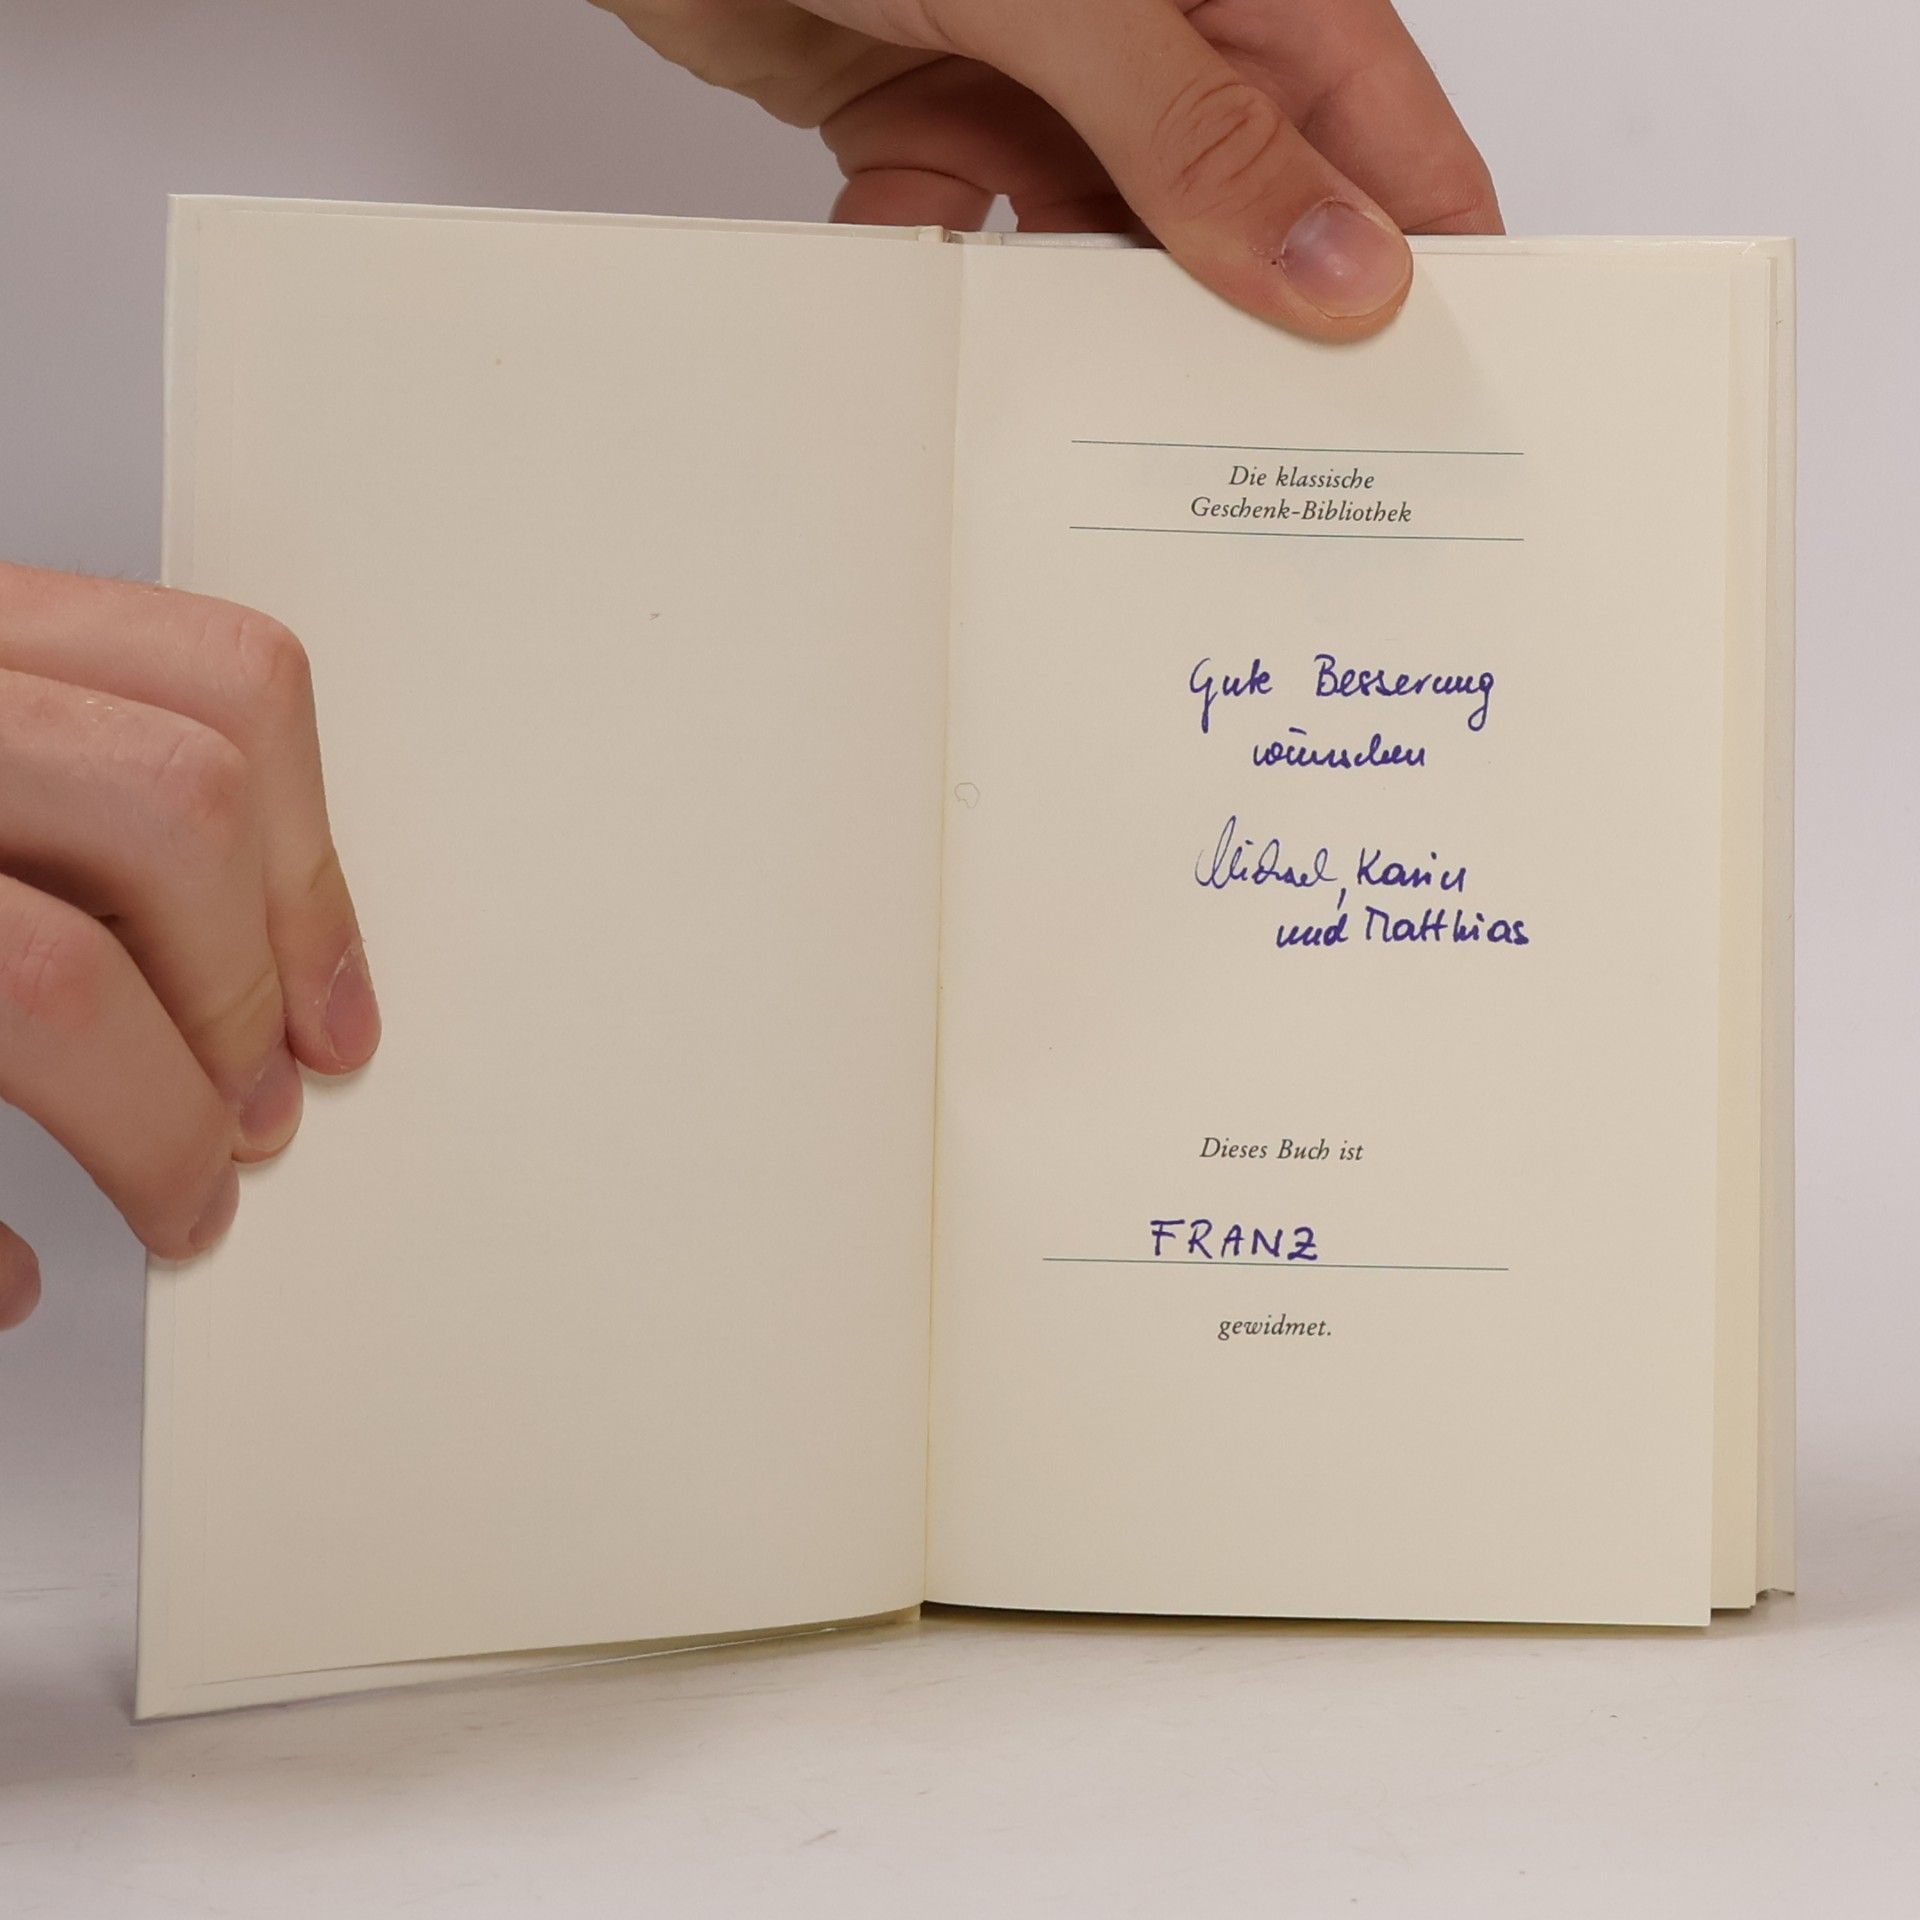 Die klassische
Geschenk-Bibliothek
Gute Besserung
wünschen
Michael, Karin
und Matthias
Dieses Buch ist
FRANZ
gewidmet.